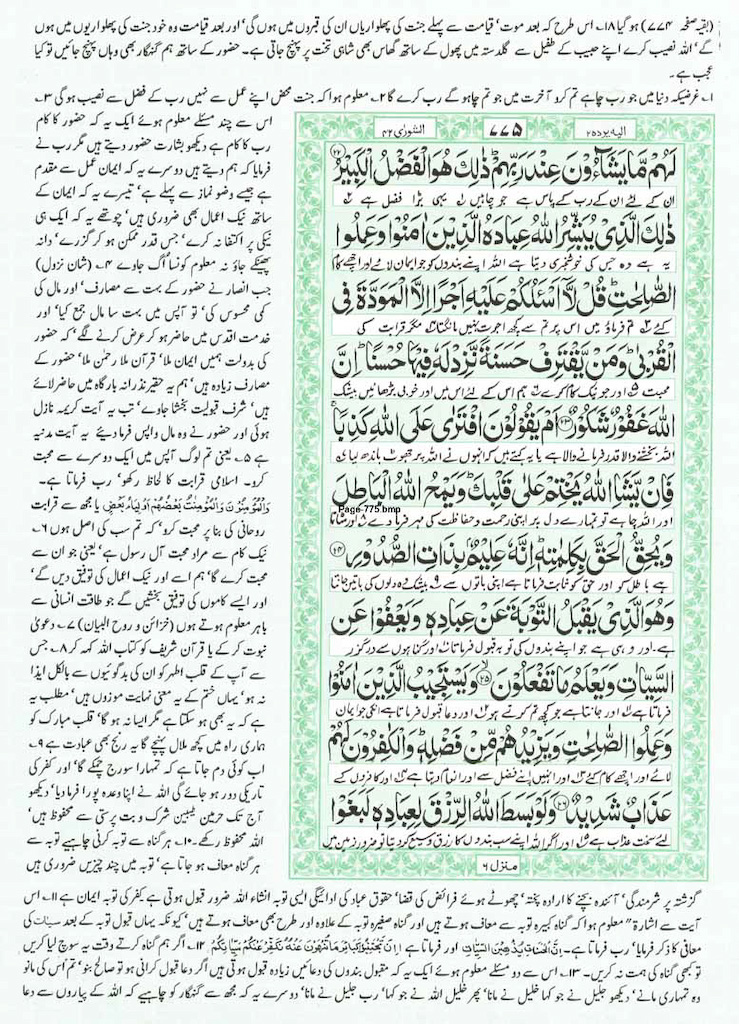 (بقیہ صفحہ ۷۷۴) ہو گیا ۱۸۔ اس طرح کہ بعد موت' قیامت سے پہلے جنت کی پھلواریاں ان کی قبروں میں ہوں گی' اور بعد قیامت وہ خود جنت کی پھلواریوں میں ہوں
گے' اللہ نصیب کرے اپنے حبیب کے طفیل سے گلدستہ میں پھول کے ساتھ گھاس بھی شاہی تخت پر پہنچ جاتی ہے۔ حضور کے ساتھ ہم گنہگار بھی وہاں پہنچ جائیں تو کیا
عجب ہے۔
۱۔ غرضیکہ دنیا میں جو رب چاہے تم کرو آخرت میں جو تم چاہو گے رب کرے گا ۲۔ معلوم ہوا کہ جنت محض اپنے عمل سے نہیں رب کے فضل سے نصیب ہو گی ۳۔
اس سے چند مسئلے معلوم ہوئے ایک یہ کہ حضور کا کام
رب کا کام ہے دیکھو بشارت حضور دیتے ہیں مگر رب نے
فرمایا کہ ہم دیتے ہیں دوسرے یہ کہ ایمان عمل سے مقدم
ہے جیسے وضو نماز سے پہلے ہے' تیسرے یہ کہ ایمان کے
ساتھ نیک اعمال بھی ضروری ہیں' چوتھے یہ کہ ایک ہی
نیکی پر اکتفا نہ کرے' جس قدر ممکن ہو کر گزرے' دانہ
پھینکے جاؤ نہ معلوم کونسا اگ جاوے ۴۔ (شان نزول)
جب انصار نے حضور کے بہت سے مصارف' اور مال کی
کمی محسوس کی' تو آپس میں بہت سا مال جمع کیا' اور
خدمت اقدس میں حاضر ہو کر عرض کرنے لگے' کہ حضور
کی بدولت ہمیں ایمان ملا' قرآن ملا رحمٰن ملا' حضور کے
مصارف زیادہ ہیں' ہم یہ حقیر نذرانہ بارگاہ میں حاضر لائے
ہیں' شرف قبولیت بخشا جاوے' تب یہ آیت کریمہ نازل
ہوئی اور حضور نے وہ مال واپس فرما دیئے یہ آیت مدنیہ
ہے ۵۔ یعنی تم لوگ آپس میں ایک دوسرے سے محبت
کرو۔ اسلامی قرابت کا لحاظ رکھو' رب فرماتا ہے۔
وَالْمُؤْمِنُوْنَ وَالْمُؤْمِنٰتُ بَعْضُهُمْ اَوْلِيَآءُ بَعْضٍ یا مجھ سے قرابت
روحانی کی بنا پر محبت کرو' کہ تم سب کی اصل ہوں ۶۔
نیک کام سے مراد محبت آل رسول ہے' یعنی جو ان سے
محبت کرے گا' ہم اسے اور نیک اعمال کی توفیق دیں گے'
اور ایسے کاموں کی توفیق بخشیں گے جو طاقت انسانی سے
باہر معلوم ہوتے ہوں (خزائن و روح البیان) ۷۔ دعویٰ
نبوت کر کے یا قرآن شریف کو کتاب اللہ کہہ کر ۸۔ جس
سے آپ کے قلب اطہر کو ان کی بدگوئیوں سے بالکل ایذا
نہ ہو' یہاں ختم کے یہ معنی نہایت موزوں ہیں' مطلب یہ
ہے کہ یہ بھی ہو سکتا ہے مگر ایسا نہ ہو گا' قلب مبارک کو
ہماری راہ میں کچھ ملال پہنچے گا یہ رنج بھی عبادت ہے ۹۔
اب کوئی دم جاتا ہے کہ تمہارا سورج چمکے گا' اور کفر کی
تاریکی دور ہو جائے گی اللہ نے اپنا وعدہ پورا فرما دیا' دیکھو
آج تک حرمین طیبین شرک و بت پرستی سے محفوظ ہیں'
اللہ محفوظ رکھے ۱۰۔ ہر گناہ سے توبہ کرنی چاہیے توبہ سے
ہر گناہ معاف ہو جاتا ہے' توبہ میں چند چیزیں ضروری ہیں
الیہ یردہ ۲۵
۷۷۵
الشورٰی ۴۲
لَهُمْ مَّا يَشَآءُوْنَ عِنْدَ رَبِّهِمْ ذٰلِكَ هُوَ الْفَضْلُ الْكَبِيْرُ ۲۲
ان کے لئے ان کے رب کے پاس ہے جو چاہیں یہی بڑا فضل ہے
ذٰلِكَ الَّذِيْ يُبَشِّرُ اللّٰهُ عِبَادَهُ الَّذِيْنَ اٰمَنُوْا وَعَمِلُوا
یہ ہے وہ جس کی خوشخبری دیتا ہے اللہ اپنے بندوں کو جو ایمان لائے اور اچھے کام
الصّٰلِحٰتِ قُلْ لَّآ اَسْـَٔلُكُمْ عَلَيْهِ اَجْرًا اِلَّا الْمَوَدَّةَ فِي
کئے تم فرماؤ میں اس پر تم سے کچھ اجرت نہیں مانگتا مگر قرابت کی
الْقُرْبٰى وَمَنْ يَّقْتَرِفْ حَسَنَةً نَّزِدْ لَهٗ فِيْهَا حُسْنًا اِنَّ
محبت اور جو نیک کام کرے ہم اس کے لئے اس میں اور خوبی بڑھائیں بیشک
اللّٰهَ غَفُوْرٌ شَكُوْرٌ ۲۳ اَمْ يَقُوْلُوْنَ افْتَرٰى عَلَى اللّٰهِ كَذِبًا
اللہ بخشنے والا قدر فرمانے والا ہے یا یہ کہتے ہیں کہ انہوں نے اللہ پر جھوٹ باندھ لیا
فَاِنْ يَّشَاِ اللّٰهُ يَخْتِمْ عَلٰى قَلْبِكَ وَيَمْحُ اللّٰهُ الْبَاطِلَ
Page 775.bmp
اور اللہ چاہے تو تمہارے دل پر اپنی رحمت و حفاظت کی مہر فرما دے اور مٹاتا
وَيُحِقُّ الْحَقَّ بِكَلِمٰتِهٖ اِنَّهٗ عَلِيْمٌ بِذَاتِ الصُّدُوْرِ ۲۴
ہے باطل کو اور حق کو ثابت فرماتا ہے اپنی باتوں سے ۹ بیشک وہ دلوں کی باتیں جانتا
وَهُوَ الَّذِيْ يَقْبَلُ التَّوْبَةَ عَنْ عِبَادِهٖ وَيَعْفُوْا عَنِ
ہے۔ اور وہی ہے جو اپنے بندوں کی توبہ قبول فرماتا اور گناہوں سے درگزر
السَّيِّاٰتِ وَيَعْلَمُ مَا تَفْعَلُوْنَ ۲۵ وَيَسْتَجِيْبُ الَّذِيْنَ اٰمَنُوْا
فرماتا ہے اور جانتا ہے جو کچھ تم کرتے ہو اور دعا قبول فرماتا ہے انکی جو ایمان
وَعَمِلُوا الصّٰلِحٰتِ وَيَزِيْدُهُمْ مِّنْ فَضْلِهٖ وَالْكٰفِرُوْنَ لَهُمْ
لائے اور اچھے کام کئے اور انہیں اپنے فضل سے اور انعام دیتا ہے اور کافروں کے
عَذَابٌ شَدِيْدٌ ۲۶ وَلَوْ بَسَطَ اللّٰهُ الرِّزْقَ لِعِبَادِهٖ لَبَغَوْا
لئے سخت عذاب ہے اور اگر اللہ اپنے سب بندوں کا رزق وسیع کر دیتا تو ضرور زمین میں
منزل ۶
گزشتہ پر شرمندگی' آئندہ بچنے کا ارادہ پختہ' چھوٹے ہوئے فرائض کی قضا' حقوق عباد کی ادائیگی ایسی توبہ انشاء اللہ ضرور قبول ہوتی ہے کفر کی توبہ ایمان ہے ۱۱۔ اس
آیت سے اشارۃً معلوم ہوا کہ گناہ کبیرہ توبہ سے معاف ہوتے ہیں اور گناہ صغیرہ توبہ کے علاوہ اور طرح بھی معاف ہوتے ہیں' کیونکہ یہاں قبول توبہ کے بعد سیئات کی
معافی کا ذکر فرمایا' رب فرماتا ہے۔ اِنَّ الْحَسَنٰتِ يُذْهِبْنَ السَّيِّاٰتِ اور فرماتا ہے اِنْ تَجْتَنِبُوْا كَبَآئِرَ مَا تُنْهَوْنَ عَنْهُ نُكَفِّرْ عَنْكُمْ سَيِّاٰتِكُمْ ۱۲۔ اگر ہم گناہ کرتے وقت یہ سوچ لیا کریں
تو کبھی گناہ کی ہمت نہ کریں۔ ۱۳۔ اس سے دو مسئلے معلوم ہوئے ایک یہ کہ مقبول بندوں کی دعائیں زیادہ قبول ہوتی ہیں اگر دعا قبول کرانی ہو تو صالح بنو' تم اس کی مانو
وہ تمہاری مانے' دیکھو جلیل نے جو کہا خلیل نے مانا' پھر خلیل اللہ نے جو کہا' رب جلیل نے مانا' دوسرے یہ کہ مجھ سے گنہگار کو چاہیے کہ اللہ کے پیاروں سے دعا